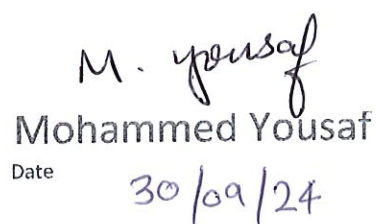 M. yousaf
Mohammed Yousaf
Date
30/09/24